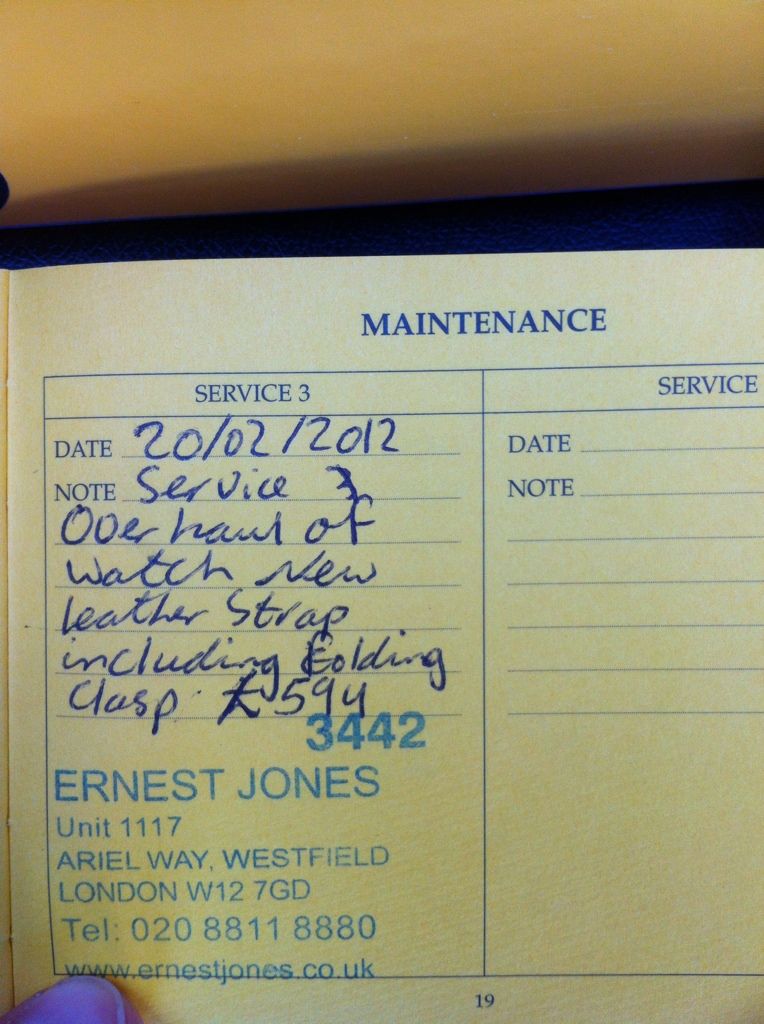 MAINTENANCE
SERVICE 3
DATE 20/02/2012
NOTE Service 3
Overhaul of
watch New
leather Strap
including Folding
Clasp. £594
3442
ERNEST JONES
Unit 1117
ARIEL WAY, WESTFIELD
LONDON W12 7GD
Tel: 020 8811 8880
www.ernestjones.co.uk
SERVICE
DATE
NOTE
19